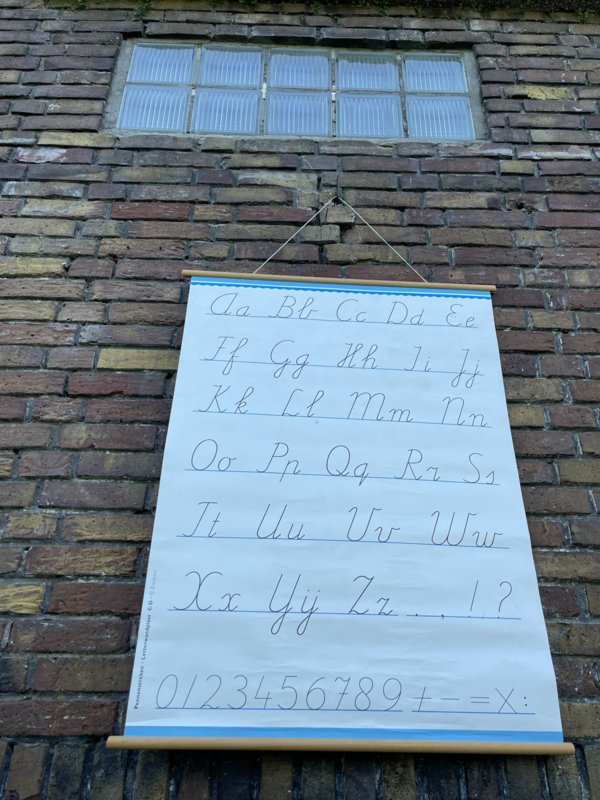 Aa Bb Cc Dd Ee
Ff Gg Hh Ii Jj
Kk Ll Mm Nn
Oo Pp Qq Rr Ss
Tt Uu Vv Ww
Xx IJij Zz . , ! ?
0123456789 + - = X :
Pennenstreken - Letterwandplaat C-D